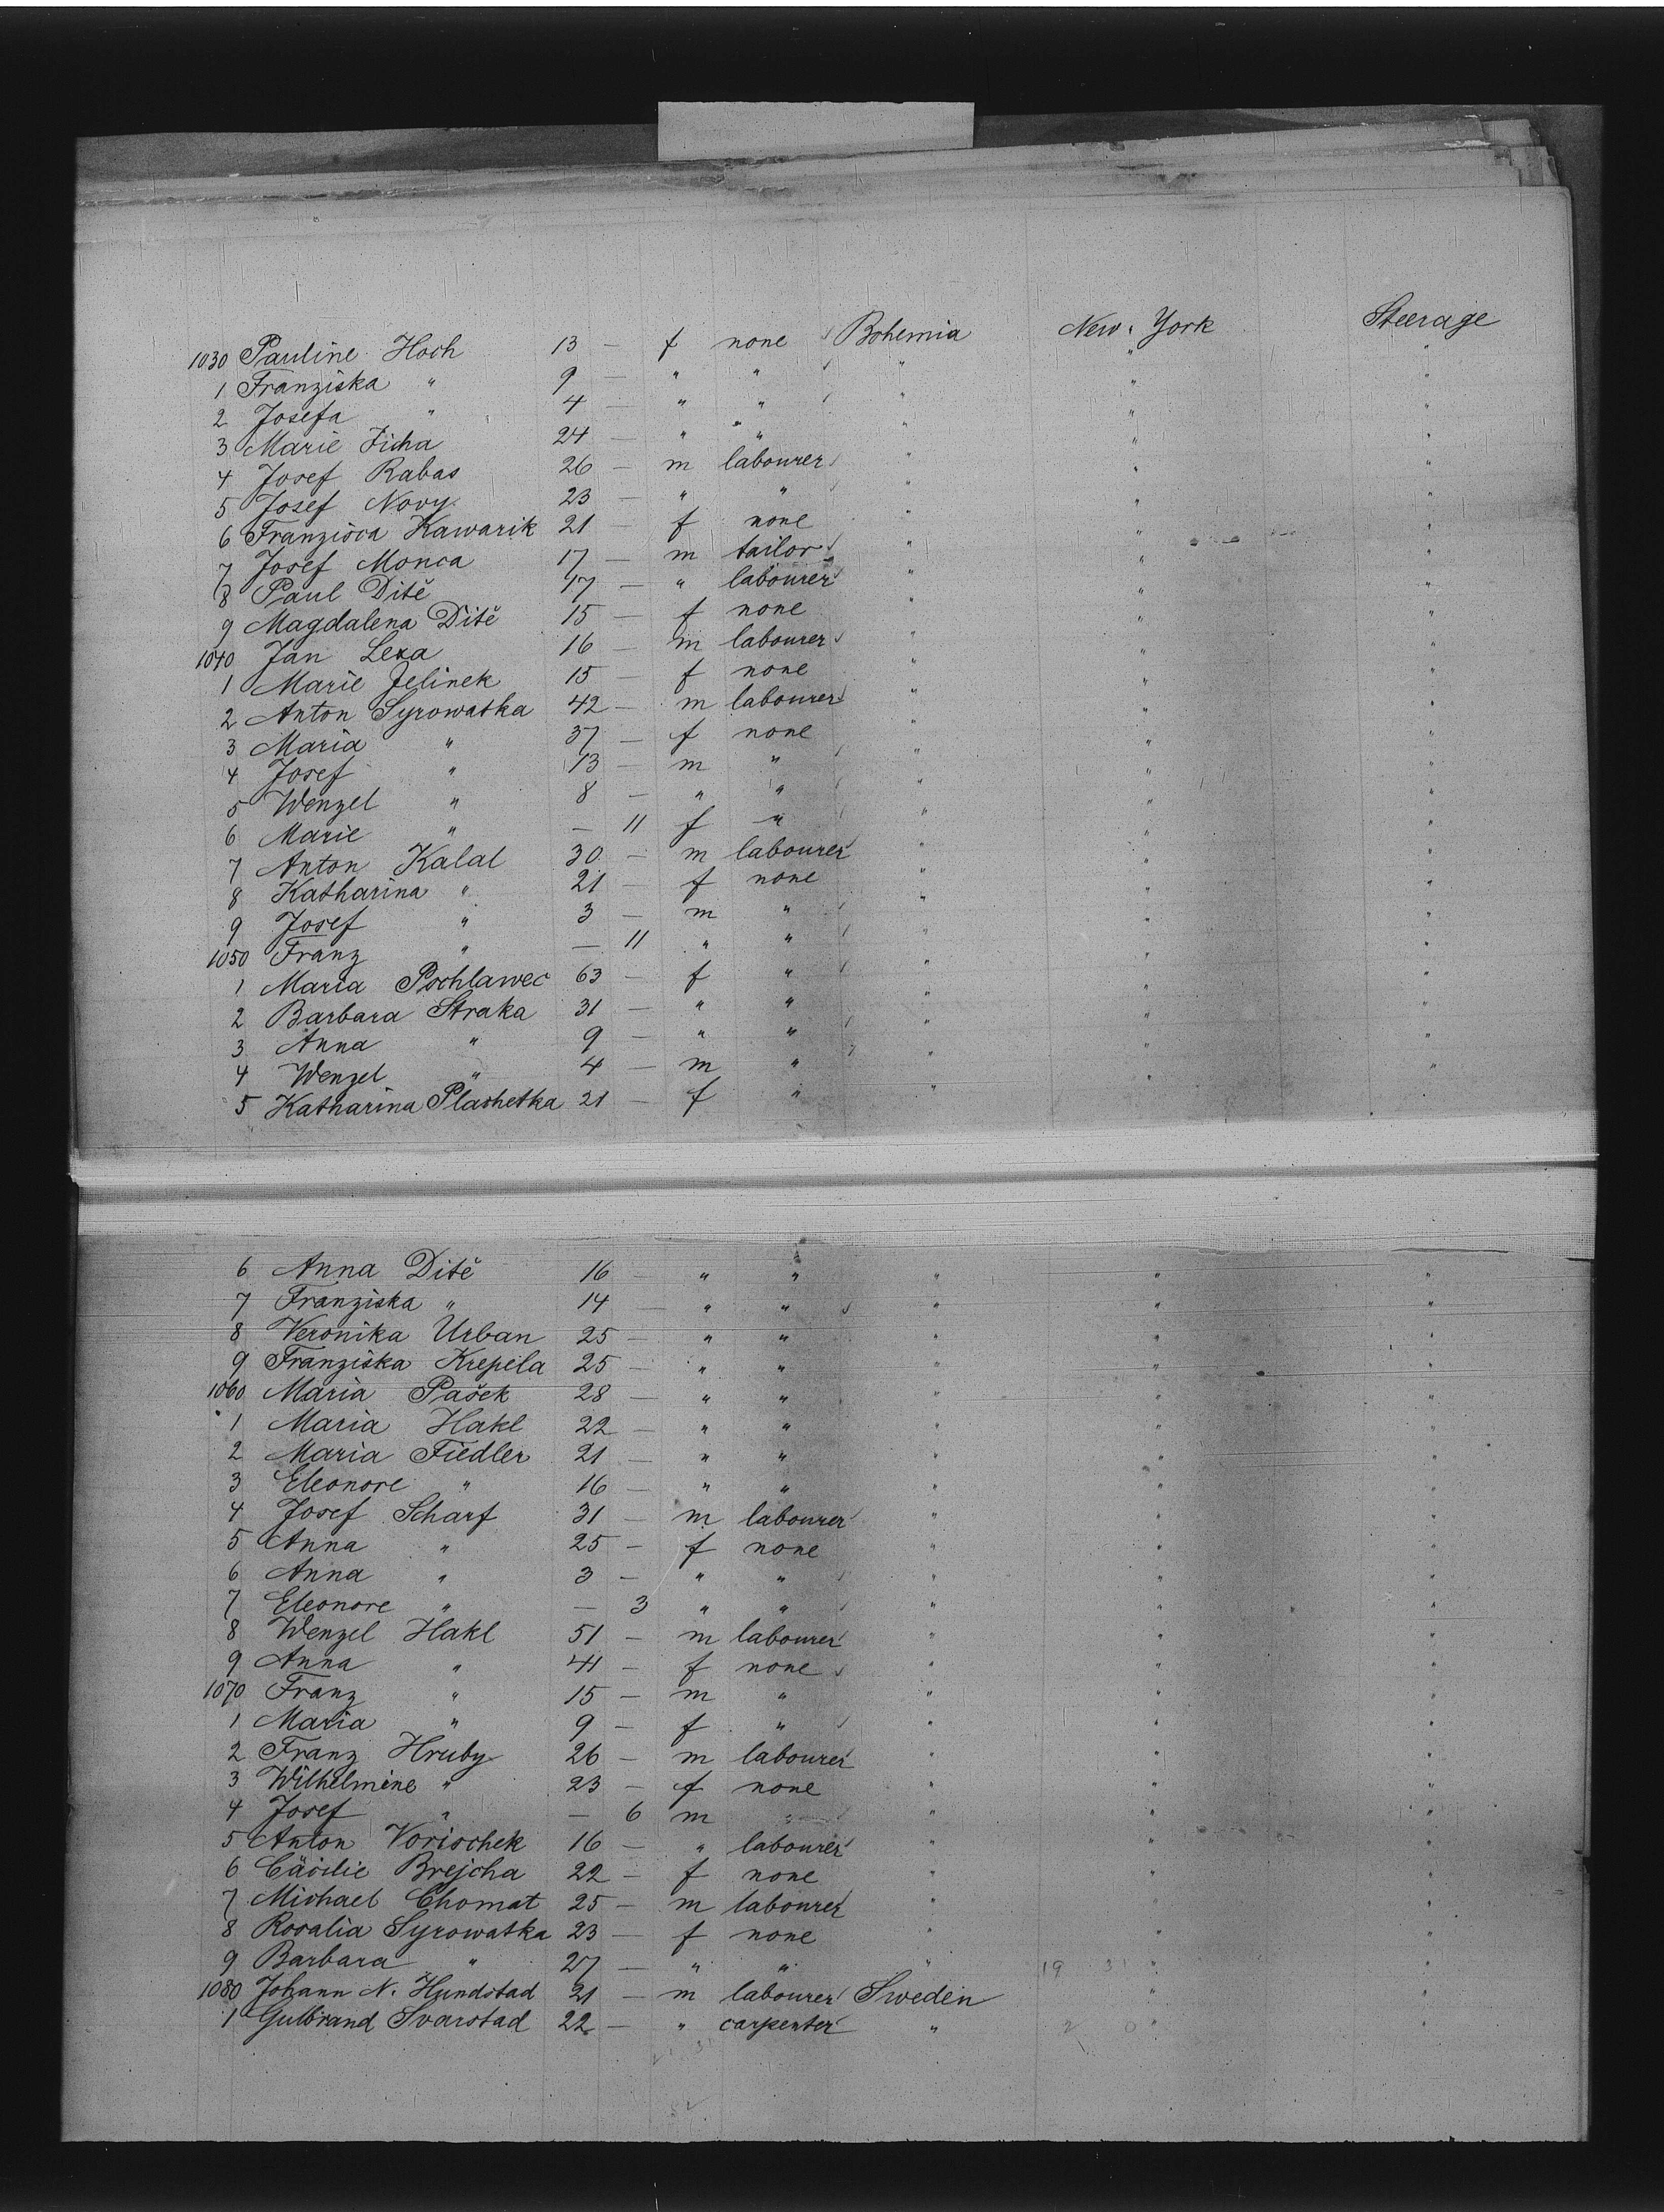 1030 Pauline Hoch 13 — f none Bohemia New-York Steerage
1 Franziska " 9 — " " " " "
2 Josefa " 4 — " " " " "
3 Marie Jicha 24 — " " " " "
4 Josef Rabas 26 — m labourer " " "
5 Josef Novy 23 — " " " " "
6 Franzisca Kawarik 21 — f none " " "
7 Josef Monca 17 — m tailor " " "
8 Paul Ditě 17 — " labourer " " "
9 Magdalena Ditě 15 — f none " " "
1040 Jan Lexa 16 — m labourer " " "
1 Marie Jelinek 15 — f none " " "
2 Anton Syrowatka 42 — m labourer " " "
3 Maria " 37 — f none " " "
4 Josef " 13 — m " " " "
5 Wenzel " 8 — " " " " "
6 Marie " — 11 f " " " "
7 Anton Kalal 30 — m labourer " " "
8 Katharina " 21 — f none " " "
9 Josef " 3 — m " " " "
1050 Franz " — 11 " " " " "
1 Maria Pochlawec 63 — f " " " "
2 Barbara Straka 31 — " " " " "
3 Anna " 9 — " " " " "
4 Wenzel " 4 — m " " " "
5 Katharina Plashetka 21 — f " " " "
6 Anna Ditě 16 — " " " " "
7 Franziska " 14 — " " " " "
8 Veronika Urban 25 — " " " " "
9 Franziska Krepela 25 — " " " " "
1060 Maria Pašek 28 — " " " " "
1 Maria Hakl 22 — " " " " "
2 Maria Fiedler 21 — " " " " "
3 Eleonore " 16 — " " " " "
4 Josef Scharf 31 — m labourer " " "
5 Anna " 25 — f none " " "
6 Anna " 3 — " " " " "
7 Eleonore " — 3 " " " " "
8 Wenzel Hakl 51 — m labourer " " "
9 Anna " 41 — f none " " "
1070 Franz " 15 — m " " " "
1 Maria " 9 — f " " " "
2 Franz Hruby 26 — m labourer " " "
3 Wilhelmine " 23 — f none " " "
4 Josef " — 6 m " " " "
5 Anton Vorischek 16 — " labourer " " "
6 Cäcilie Brejcha 22 — f none " " "
7 Michael Chomat 25 — m labourer " " "
8 Rosalia Syrowatka 23 — f none " " "
9 Barbara " 27 — " " " 19 31 " "
1080 Johann N. Hundstad 21 — m labourer Sweden " "
1 Gulbrand Svarstad 22 — " carpenter " 2 0 " "